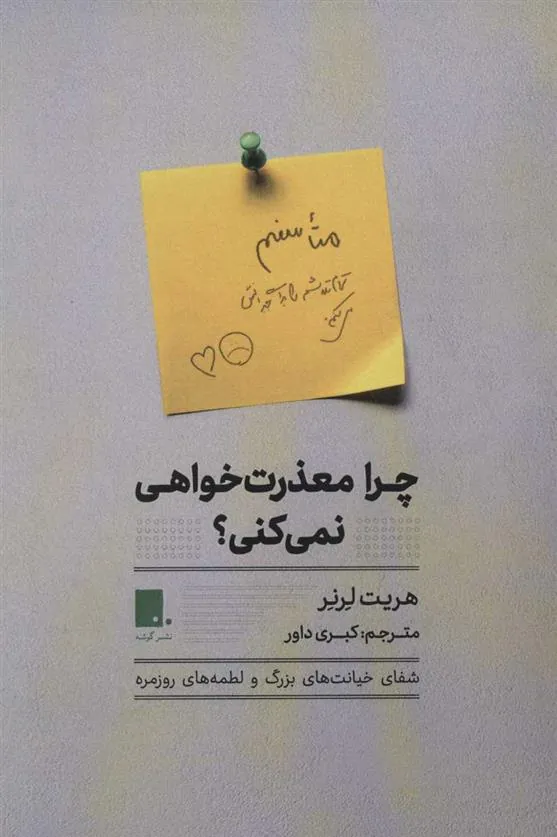 متأسفم
تمام تلاشم را برای جبرانش
می‌کنم.
چرا معذرت‌خواهی
نمی‌کنی؟
هریت لِرنِر
مترجم: کبری داور
نشر گوشه
شفای خیانت‌های بزرگ و لطمه‌های روزمره